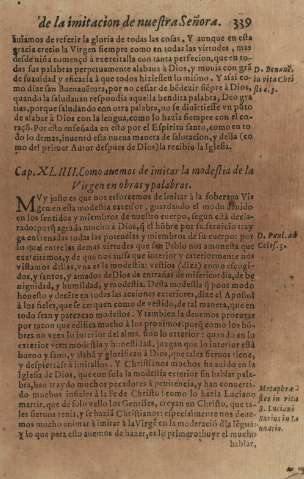 de la imitacion de nuestra Señora. 339
auiamos de referir la gloria de todas las cosas. Y aunque en esta
gracia crecio la Virgen siempre como en todas las virtudes, mas
desde niña començò à exercitalla con tanta perfecion, que en to
das sus palabras perpetuamente alabaua à Dios, y mouia con grã
de suauidad y eficacia à que todos hiziessen lo mismo. Y assi co-
mo dize san Buenauẽtura, por no cessar de bẽdezir siẽpre à Dios,
quando la saludauan respondia aquella bendita palabra, Deo gra
tias, porque saludando con otra palabra, no se diuirtiesse vn pũto
de alabar à Dios con la lengua, como lo hazia siempre con el co-
raçõ. Por esto enseñada en esto por el Espiritu santo, como en to
do lo demas, inuentò esta nueua manera de salutacion, y della (co
mo del primer Autor despues de Dios) ha quedado en la Iglesia.
D. Benauẽ.
Cap. XLIIII. Como auemos de imitar la modestia de la
Virgen en obras y palabras.
MVy justo es que nos esforcemos de imitar à la soberana Vir
gen en esta modestia exterior, guardando el modo deuido
en los sentidos y miembros de nuestro cuerpo, segun està decla-
rado: porq̃ agradà mucho à Dios, q̃ el hõbre por su seruicio tray
ga cõsiertas todas las potencias y miembros de su cuerpo: por
lo qual entre las demas virtudes que san Pablo nos amonesta que
exercitemos, y de que nos aspire interior y exteriormente nos
vistamos dellas, vna es la modestia: vestios (dize) como escogi-
dos, y santos, y amados de Dios de entrañas de misericordia, de be
nignidad, y humildad, y modestia.
D. Paul. ad
Colos. 3.
à los fieles, que se cerquen como de vestido, de tal manera, que en
todo sean y parezcan modestos. Y tambien la deuemos procurar
por razon que edifica mucho à los proximos: porq̃ como los hõ-
bres no veen lo interior del alma, sino lo exterior: quando en lo
exterior veen modestia y honestidad, juzgan que lo interior està
bueno y sano, y alaba y glorifican à Dios, que tales sieruos tiene,
y despiertase à imitallos. Y Christianos muchos ha auido en la
Iglesia de Dios, que con sola la modestia exterior sin hablar pala-
bra, han traydo muchos pecadores à penitencia, y han conuerti-
do muchos infieles à la Fè de Christo: como lo hazia Luciano
martir, que de solo vello los Gentiles, creyan en Christo, que ta-
les sieruos tenia, y se hazià Christianos: especialmente nos deue-
mos mucho animar à imitar à la Virgen en la moderaciõ dela lẽgua:
y lo que para esto auemos de hazer, es lo primero huyr el mucho
hablar,
Metaphras
tes in vita
S. Luciani
Surius in Ia
nuario.